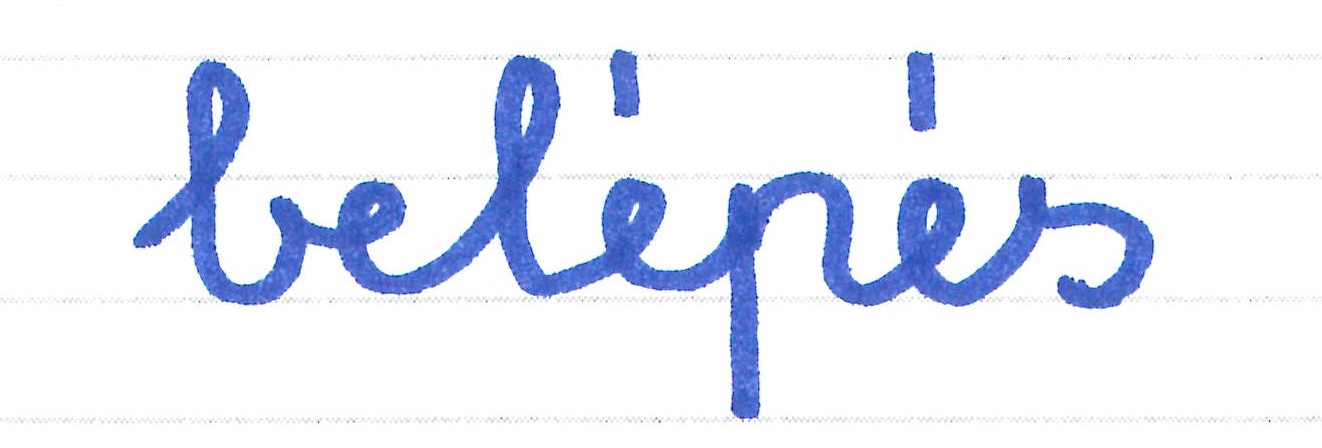 belépés